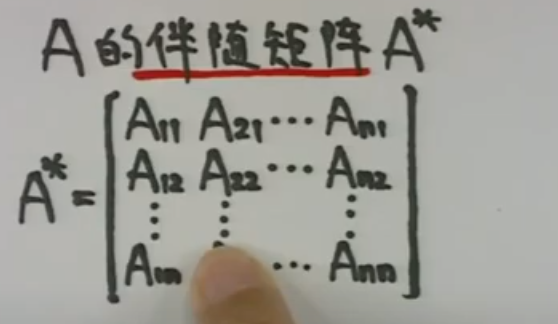 A的伴随矩阵A*
A₁₁ A₂₁ ⋯ Aₙ₁
A* = A₁₂ A₂₂ ⋯ Aₙ₂
⋮ ⋮ ⋮
A₁ₙ ⋯ Aₙₙ